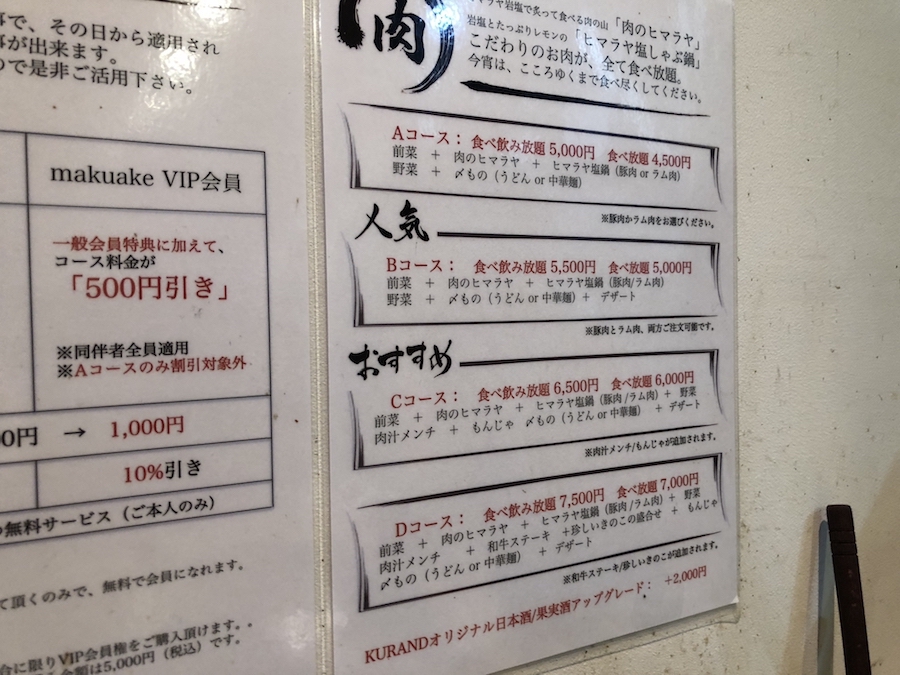 で、その日から適用され
が出来ます。
ので是非ご活用下さい。
makuake VIP会員
一般会員特典に加えて、
コース料金が
「500円引き」
※同伴者全員適用
※Aコースのみ割引対象外
0円 → 1,000円
10%引き
無料サービス（ご本人のみ）
て頂くのみで、無料で会員になれます。
合に限りVIP会員権をご購入頂けます。。
金額は5,000円（税込）です。
肉
ヒマラヤ岩塩で炙って食べる肉の山「肉のヒマラヤ」
岩塩とたっぷりレモンの「ヒマラヤ塩しゃぶ鍋」
こだわりのお肉が、全て食べ放題。
今宵は、こころゆくまで食べ尽くしてください。
Aコース： 食べ飲み放題 5,000円 食べ放題 4,500円
前菜 ＋ 肉のヒマラヤ ＋ ヒマラヤ塩鍋（豚肉 or ラム肉）
野菜 ＋ 〆もの（うどん or 中華麺）
※豚肉かラム肉をお選びください。
人気
Bコース： 食べ飲み放題 5,500円 食べ放題 5,000円
前菜 ＋ 肉のヒマラヤ ＋ ヒマラヤ塩鍋（豚肉/ラム肉）
野菜 ＋ 〆もの（うどん or 中華麺）＋ デザート
※豚肉とラム肉、両方ご注文可能です。
おすすめ
Cコース： 食べ飲み放題 6,500円 食べ放題 6,000円
前菜 ＋ 肉のヒマラヤ ＋ ヒマラヤ塩鍋（豚肉 /ラム肉）＋ 野菜
肉汁メンチ ＋ もんじゃ 〆もの（うどん or 中華麺） ＋ デザート
※肉汁メンチ/もんじゃが追加されます。
Dコース： 食べ飲み放題 7,500円 食べ放題 7,000円
前菜 ＋ 肉のヒマラヤ ＋ ヒマラヤ塩鍋（豚肉 /ラム肉）＋ 野菜
肉汁メンチ ＋ 和牛ステーキ ＋珍しいきのこの盛合せ ＋ もんじゃ
〆もの（うどん or 中華麺） ＋ デザート
※和牛ステーキ/珍しいきのこが追加されます。
KURANDオリジナル日本酒/果実酒アップグレード： +2,000円